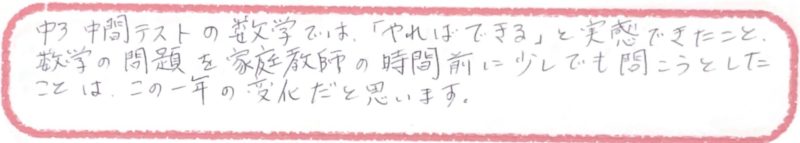 中3 中間テストの数学では、「やればできる」と実感できたこと、
数学の問題を家庭教師の時間前に少しでも問こうとした
ことは、この一年の変化だと思います。